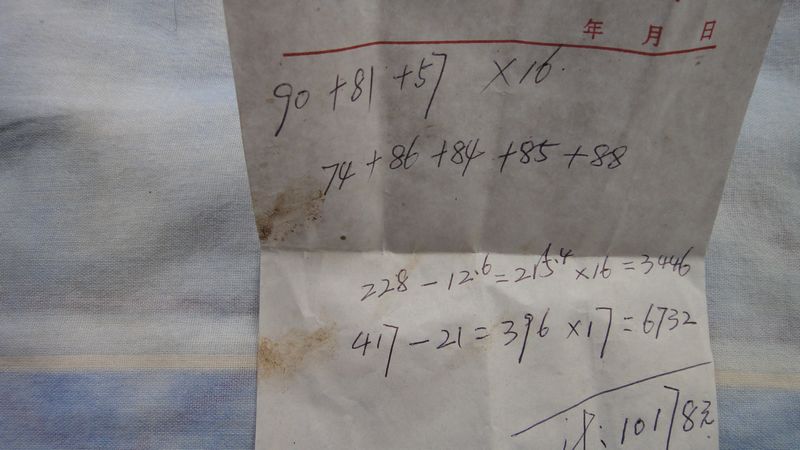 年 月 日
90+81+57 ×16.
74+86+84+85+88
228-12.6=215.4×16=3446
417-21=396×17=6732
计:10178元